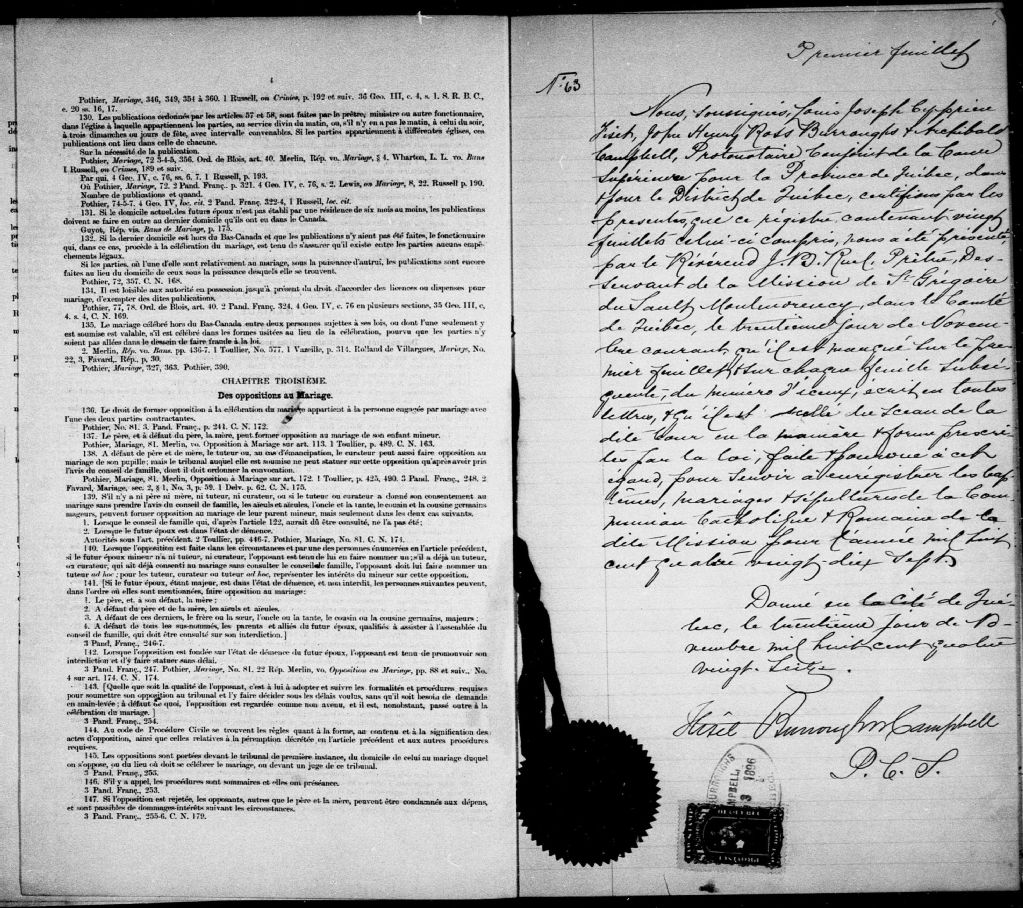 4
Pothier, Mariage, 346, 349, 354 à 360. 1 Russell, on Crimes, p. 192 et suiv. 36 Geo. III, c. 4, s. 1. S. R. B. C.,
c. 20 ss. 16, 17.
130. Les publications ordonnées par les articles 57 et 58, sont faites par le prêtre, ministre ou autre fonctionnaire,
dans l'église à laquelle appartiennent les parties, au service divin du matin, ou, s'il n'y en a pas le matin, à celui du soir,
à trois dimanches ou jours de fête, avec intervalle convenables. Si les parties appartiennent à différentes églises, ces
publications ont lieu dans celle de chacune.
Sur la nécessité de la publication.
Pothier, Mariage, 72 3-4-5, 356. Ord. de Blois, art. 40. Merlin, Rép. vo. Mariage, § 4. Wharton, L. L. vo. Bans
1 Russell, on Crimes, 189 et suiv.
Par qui. 4 Geo. IV, c. 76, ss. 6, 7. 1 Russell, p. 193.
Où Pothier, Mariage, 72. 2 Pand. Franç. p. 321. 4 Geo. IV, c. 76, s. 2. Lewis, on Mariage, 8, 22. Russell p. 190.
Nombre de publications et quand.
Pothier, 74-5-7. 4 Geo. IV, loc. cit. 2 Pand. Franç. 322-4, 1 Russell, loc. cit.
131. Si le domicile actuel des futurs époux n'est pas établi par une résidence de six mois au moins, les publications
doivent se faire en outre au dernier domicile qu'ils ont eu dans le Canada.
Guyot, Rép. vis. Bans de Mariage, p. 175.
132. Si le dernier domicile est hors du Bas-Canada et que les publications n'y aient pas été faites, le fonctionnaire
qui, dans ce cas, procède à la célébration du mariage, est tenu de s'assurer qu'il existe entre les parties aucuns empê-
chements légaux.
Si les parties, où l'une d'elle sont relativement au mariage, sous la puissance d'autrui, les publications sont encore
faites au lieu du domicile de ceux sous la puissance desquels elle se trouvent.
Pothier, 72, 357. C. N. 168.
134. Il est loisible aux autorité en possession jusqu'à présent du droit d'accorder des licences ou dispenses pour
mariage, d'exempter des dites publications.
Pothier, 77, 78. Ord. de Blois, art. 40. 2 Pand. Franç. 324. 4 Geo. IV, c. 76 en plusieurs sections. 35 Geo. III, c.
4, s. 4, C. N. 169.
135. Le mariage célébré hors du Bas-Canada entre deux personnes sujettes à ses lois, ou dont l'une seulement y
est soumise est valable, s'il est célébré dans les formes usitées au lieu de la célébration, pourvu que les parties n'y
soient pas allées dans le dessein de faire fraude à la loi.
2. Merlin, Rép. vo. Bans. pp. 436-7. 1 Toullier, No. 577. 1 Vazeille, p. 314. Rolland de Villargues, Mariage, No.
22, 3, Favard, Rép., p. 30.
Pothier, Mariage, 327, 363. Pothier, 390.
CHAPITRE TROISIÈME.
Des oppositions au Mariage.
136. Le droit de former opposition à la célébration du mariage appartient à la personne engagée par mariage avec
l'une des deux parties contractantes.
Pothier, No. 81. 3. Pand. Franç., p. 241. C. N. 172.
137. Le père, et à défaut du père, la mère, peut former opposition au mariage de son enfant mineur.
Pothier, Mariage, 81. Merlin, vo. Opposition à Mariage sur art. 113. 1 Toullier, p. 489. C. N. 163.
138. A défaut de père et de mère, le tuteur ou, au cas d'émancipation, le curateur peut aussi faire opposition au
mariage de son pupille; mais le tribunal auquel elle est soumise ne peut statuer sur cette opposition qu'après avoir pris
l'avis du conseil de famille, dont il doit ordonner la convocation.
Pothier, Mariage, 81. Merlin, Opposition à Mariage sur art. 172. 1 Toullier, p. 425, 490. 3 Pand. Franç., 248. 2
Favard, Mariage, sec. 2, § 1, No. 3, p. 59. 1 Delv. p. 62. C. N. 175.
139. S'il n'y a ni père ni mère, ni tuteur, ni curateur, ou si le tuteur ou curateur a donné son consentement au
mariage sans prendre l'avis du conseil de famille, les aïeuls et aïeules, l'oncle et la tante, le cousin et la cousine germains
majeurs, peuvent former opposition au mariage de leur parent mineur, mais seulement dans les deux cas suivants.
1. Lorsque le conseil de famille qui, d'après l'article 122, aurait dû être consulté, ne l'a pas été;
2. Lorsque le futur époux est dans l'état de démence.
Autorités sous l'art. précédent. 2 Toullier, pp. 446-7. Pothier, Mariage, No. 81. C. N. 174.
140. Lorsque l'opposition est faite dans les circonstances et par une des personnes énumérées en l'article précédent,
si le futur époux mineur n'a ni tuteur, ni curateur, l'opposant est tenu de lui en faire nommer un; s'il a déjà un tuteur,
ou curateur, qui ait déjà consenti au mariage sans consulter le conseil de famille, l'opposant doit lui faire nommer un
tuteur ad hoc; pour les tuteur, curateur ou tuteur ad hoc, représenter les intérêts du mineur sur cette opposition.
141. [Si le futur époux, étant majeur, est dans l'état de démence, et non interdit, les personnes suivantes peuvent,
dans l'ordre où elles sont mentionnées, faire opposition au mariage:
1. Le père, et à son défaut, la mère;
2. A défaut du père et de la mère, les aïeuls et aïeules.
3. A défaut de ces derniers, le frère ou la sœur, l'oncle ou la tante, le cousin ou la cousine germains, majeurs;
4. A défaut de tous les sus-nommés, les parents et alliés du futur époux, qualifiés à assister à l'assemblée du
conseil de famille, qui doit être consulté sur son interdiction.]
3 Pand. Franç., 246-7.
142. Lorsque l'opposition est fondée sur l'état de démence du futur époux, l'opposant est tenu de promouvoir son
interdiction et d'y faire statuer sans délai.
3 Pand. Franç., 247. Pothier, Mariage, No. 81. 22 Rép. Merlin, vo. Opposition au Mariage, pp. 88 et suiv.. No.
4 sur art. 174. C. N. 174.
143. [Quelle que soit la qualité de l'opposant, c'est à lui à adopter et suivre les formalités et procédures requises
pour soumettre son opposition au tribunal et l'y faire décider sous les délais voulus, sans qu'il soit besoin de demande
en main-levée; à défaut de quoi, l'opposition est regardée comme non avenu, et il est, nonobstant, passé outre à la
célébration du mariage.]
3 Pand. Franç., 254.
144. Au code de Procédure Civile se trouvent les règles quant à la forme, au contenu et à la signification des
actes d'opposition, ainsi que celles relatives à la péremption décrétée en l'article précédent et aux autres procédures
requises.
145. Les oppositions sont portées devant le tribunal de première instance, du domicile de celui au mariage duquel
on s'oppose, ou du lieu où doit se célébrer le mariage, ou devant un juge de ce tribunal.
3 Pand. Franç., 253.
146. S'il y a appel, les procédures sont sommaires et elles ont préséance.
3 Pand. Franç., 253.
147. Si l'opposition est rejetée, les opposants, autres que le père et la mère, peuvent être condamnés aux dépens,
et sont passibles de dommages-intérêts suivant les circonstances.
3 Pand. Franç., 255-6. C. N. 179.
Premier feuillet
No. 63
Nous, soussignés, Louis Joseph Cyprien
Fiset, John Henry Ross Burroughs & Archibald
Campbell, Protonotaire Conjoint de la Cour
Supérieure pour la Province de Québec, dans
& pour le District de Québec, certifions par les
présentes, que ce registre, contenant vingt
feuillets celui-ci compris, nous a été présenté
par le Révérend J. B. Ruel, Prêtre, Des-
servant de la Mission de St Grégoire
du Sault Montmorency, dans le Comté
de Québec, le trentième jour de Novem-
bre courant, qu'il est marqué sur le pre-
mier feuillet & sur chaque feuille subsé-
quente, du numéro d'iceux, écrit en toutes
lettres, & qu'il est scellé du Sceau de la
dite Cour en la manière & forme prescri-
tes par la loi; faite & pourvue à cet
égard, pour servir à enregistrer les bap-
têmes, mariages & sépultures de la Com-
munion Catholique & Romaine de la
dite Mission pour l'année mil huit
cent quatre vingt-dix Sept.
Donné en la Cité de Qué-
bec, le trentième jour de No-
vembre mil huit cent quatre
vingt-Seize.
Fiset Burroughs & Campbell
P. C. S.
BURROUGHS
CAMPBELL
1896